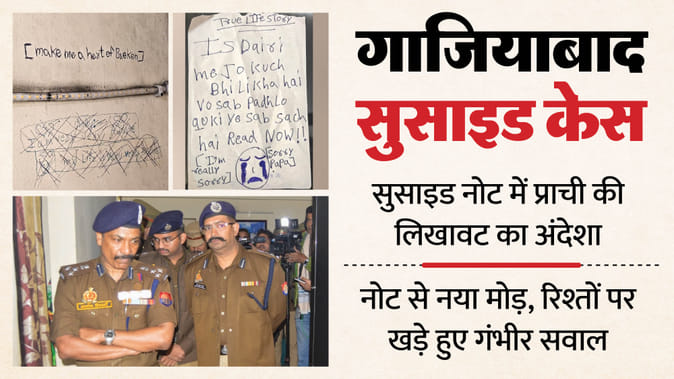 [make me a heart of Broken]
True Life Story
Is Dairi
me Jo kuch
Bhi Likha hai
Vo sab Padhlo
quki ye sab sach
hai Read NOW!!
[I'm really sorry]
[sorry Papa]
गाजियाबाद
सुसाइड केस
सुसाइड नोट में प्राची की
लिखावट का अंदेशा
नोट से नया मोड़, रिश्तों पर
खड़े हुए गंभीर सवाल